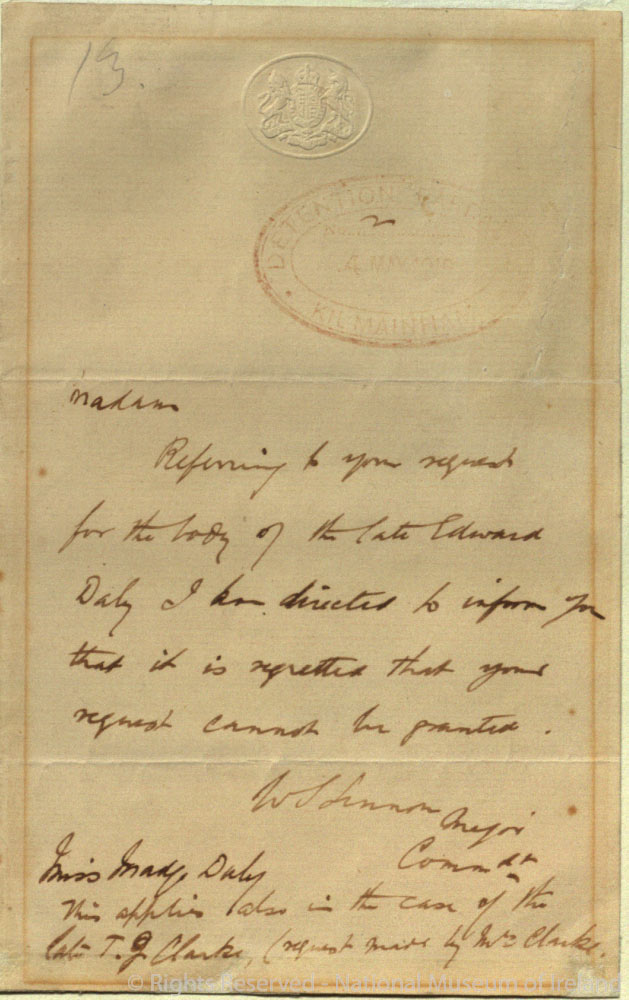 13.
DETENTION BARRACKS
4 MAY 1916
KILMAINHAM
Madam
Referring to your request
for the body of the late Edward
Daly I am directed to inform you
that it is regretted that your
request cannot be granted.
W S Lennon Major
Commdt
Miss Madge Daly
This applies also in the case of the
late T. J Clarke, (request made by Mrs Clarke.
© Rights Reserved - National Museum of Ireland